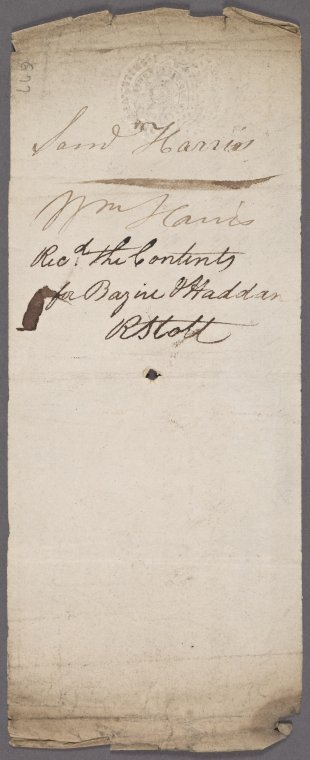 Saml Harris
Wm Harris
Recd. the Contents
for Bazire & Haddan
R Stott